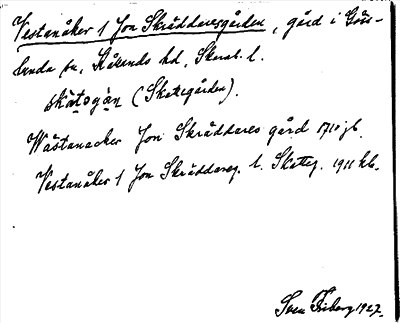 Vestanåker 1 Jon Skräddaresgården, gård i Gös-
lunda sn, Kållands hd, Skarab. l.
skåtəgàn (Skattegården).
Wästanacker Jon Skräddares gård 1710 jb.
Vestanåker 1 Jon Skräddareg. l. Skatteg. 1911 kb.
Sven Friberg 1927.